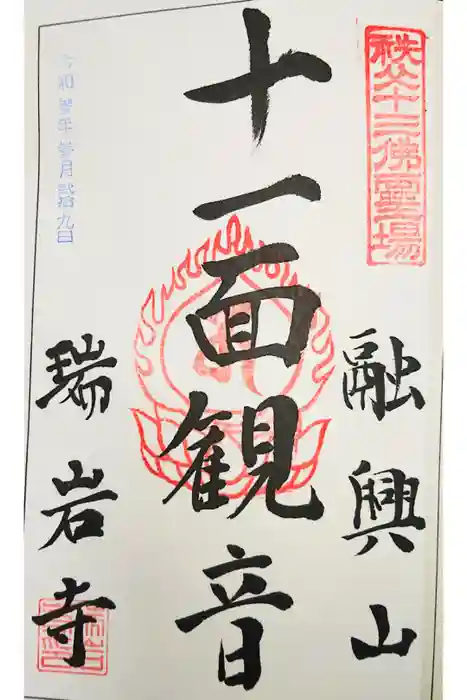 秩父十三佛霊場
融興山
十一面観音
令和参年参月弐拾九日
瑞岩寺